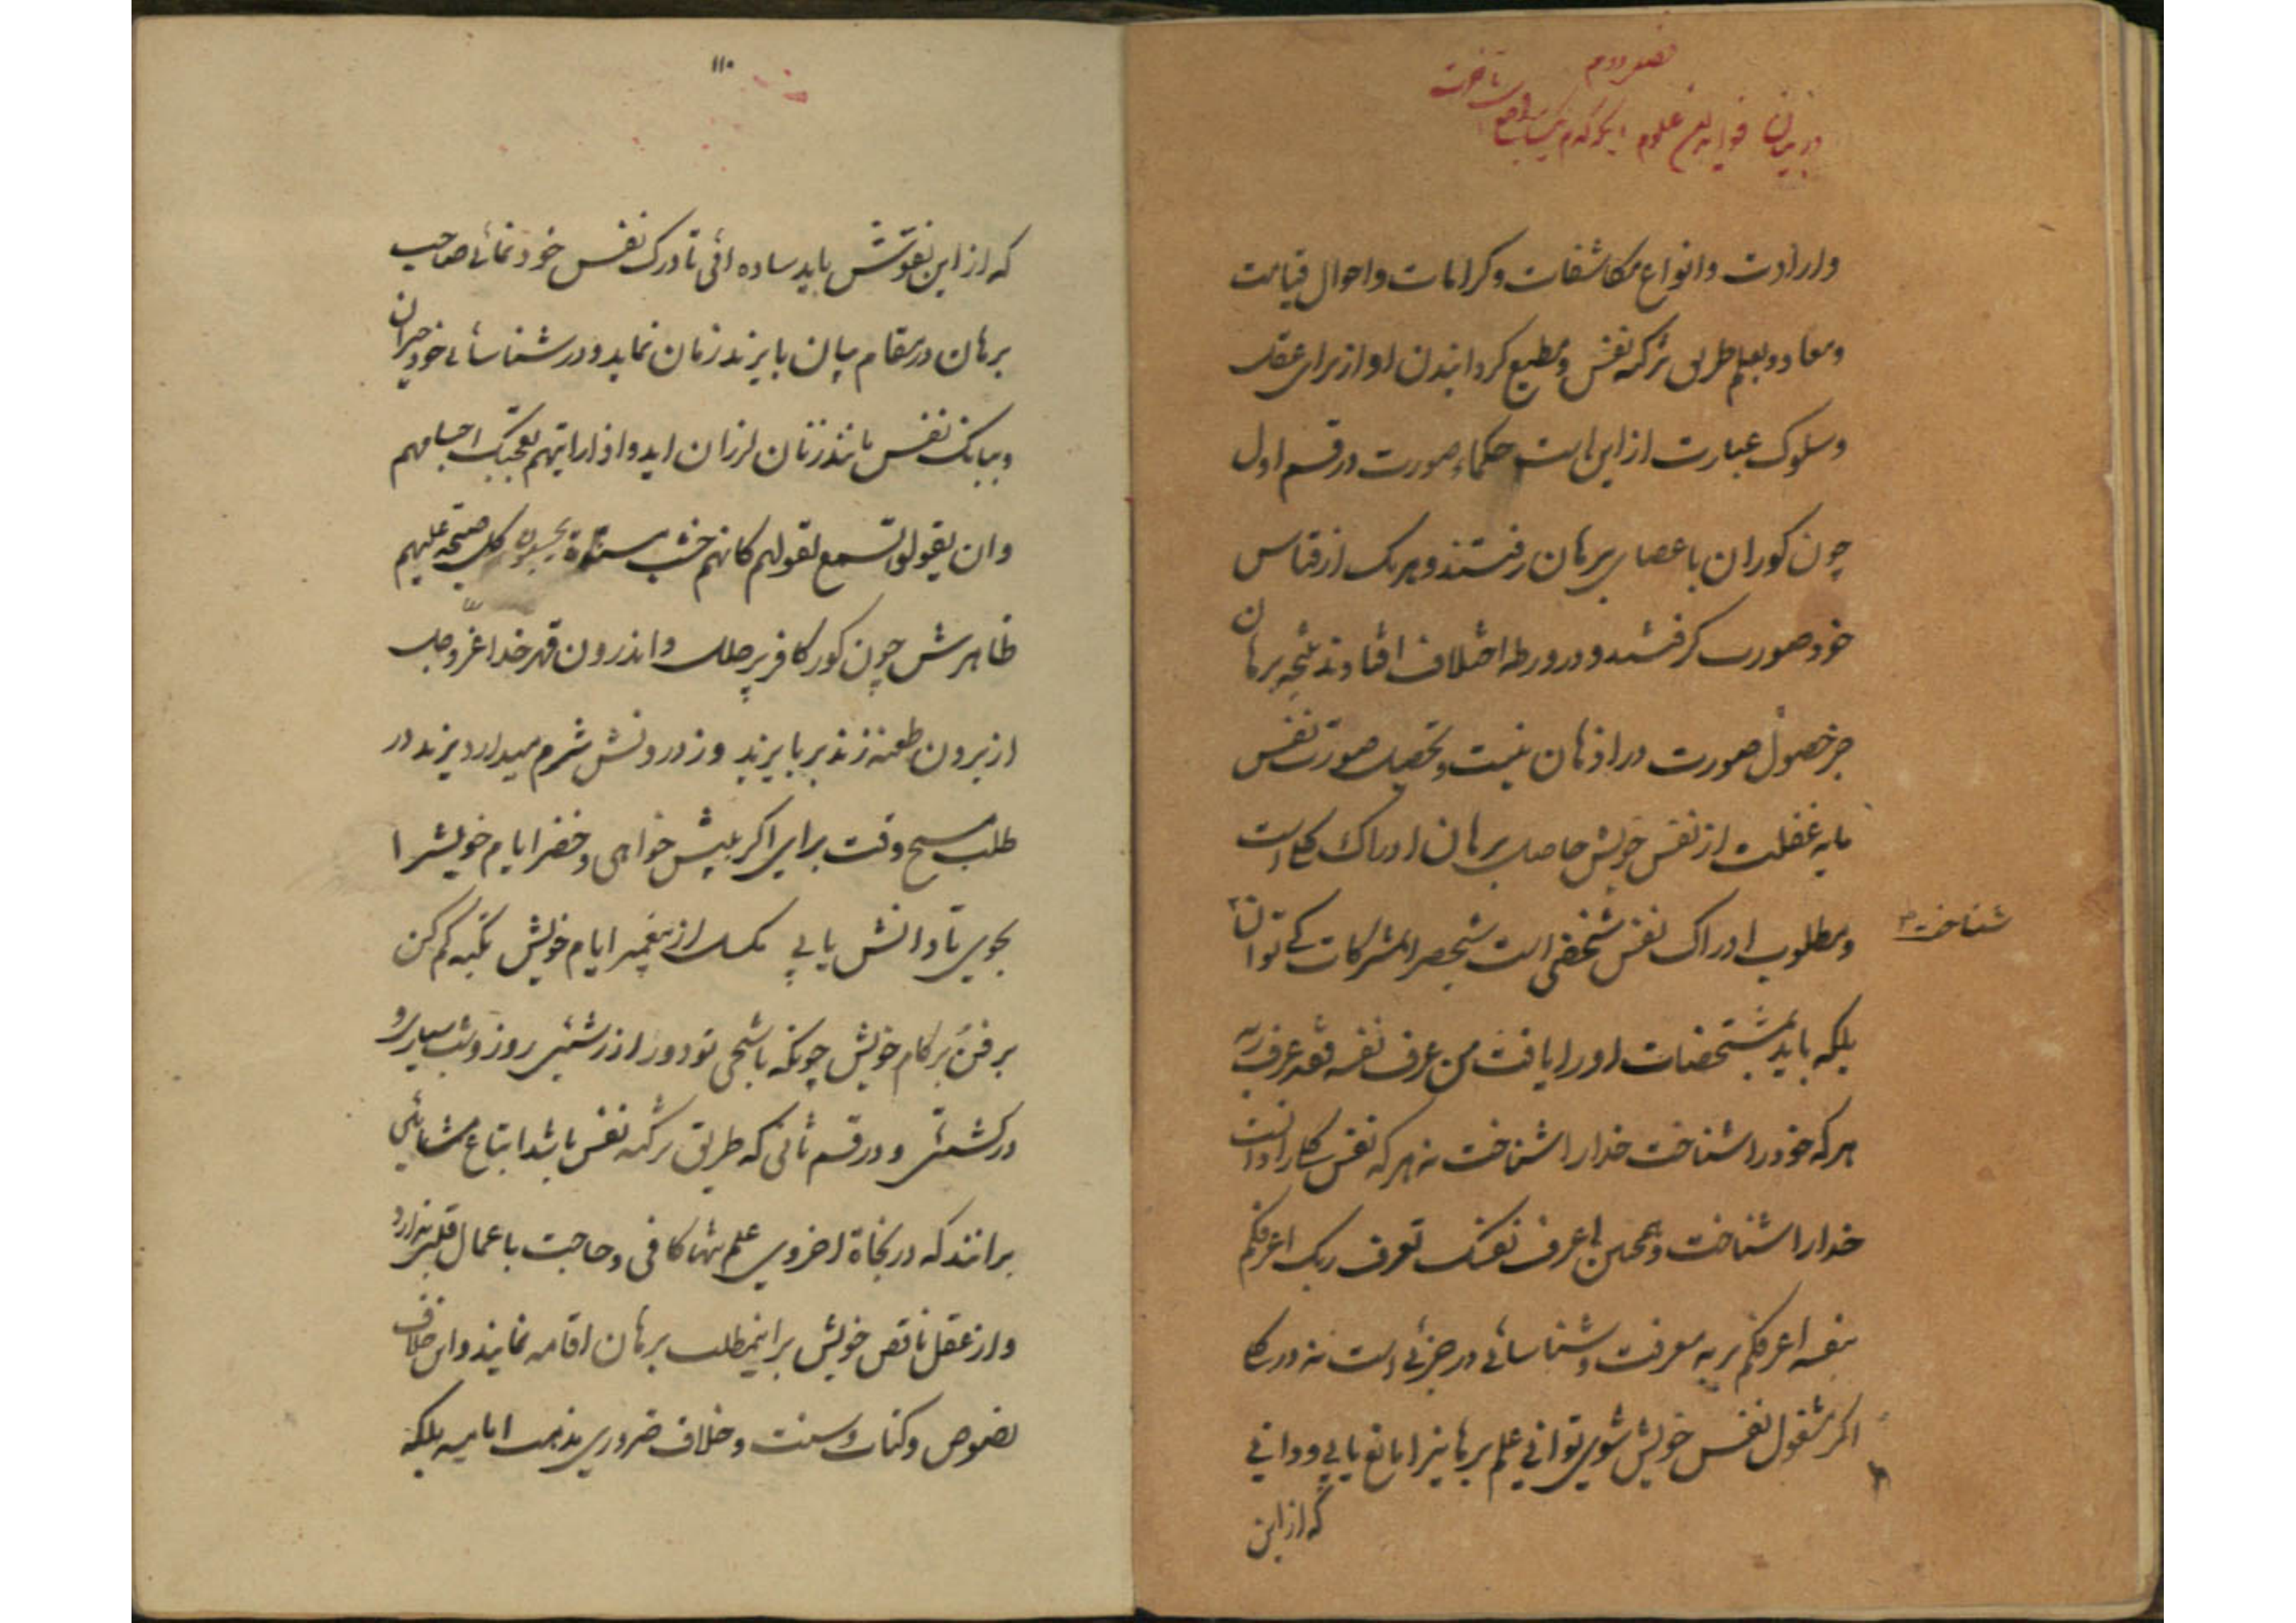 فصل دوم
در بیان فواید این علوم
واردات و انواع مکاشفات و کرامات و احوال قیامت
و معاد و تعلیم طریق تزکیه نفس و مطیع کردانیدن او از برای عقل
و سلوک عبارت از این است حکماء صورت در قسم اول
چون کوران با عصای برهان رفتند و هر یک از قیاس
خود صورت کرفتند و در ورطه اختلاف افتادند نتیجه برهان
جز حصول صورت در اذهان نیست و تحصیل صورت نفس
مایه غفلت از نفس خویش حاصل برهان ادراک کلی است
و مطلوب ادراک نفس شخصی است شخص را بمشترکات کی توان
شناخت
بلکه باید بمشخصات او را یافت من عرف نفسه فقد عرف ربه
هر که خود را شناخت خدا را شناخت نه هر که نفس کلی را دانست
خدا را شناخت و همچنین اعرف نفسک تعرف ربک اعرفکم
بنفسه اعرفکم بربه معرفت و شناسائی در جزئی است نه در کلی
اکر مشغول نفس خویش شوی توانی علم برهانی را مانع یابی و دانی
که از این
۱۱۰
که از این نقوش باید ساده ائی تا درک نفس خود نمائی صاحب
برهان در مقام بیان با یزید زمان نماید و در شناسائی خود حیران
و ببانک نفس مانند زنان لرزان اید و اذا رایتهم تعجبک اجسامهم
و ان یقولوا تسمع لقولهم کانهم خشب مسندة یحسبون کل صیحة علیهم
ظاهرش چون کور کافر پر حلل و اندرون قهر خدا عز و جل
از برون طعنه زند بر بایزید وز درونش شرم میدارد یزید در
طلب مسیح وقت برای اکر بلیش خواهی و خضر ایام خویش را
بجوی تا دانش یابی مکسل از پیغمبر ایام خویش تکیه کم کن
بر فن و بر کام خویش چونکه با شیخی تو دور از زشتیی روز و شب سیاری و
در کشتیی و در قسم ثانی که طریق تزکیه نفس باشد اتباع مشائی
برانند که در نجاة اخروی علم تنها کافی و حاجت باعمال قلبی ندارد
و از عقل ناقص خویش بر اینمطلب برهان اقامه نمایند و این خلاف
نصوص و کتاب و سنت و خلاف ضروری مذهب امامیه بلکه